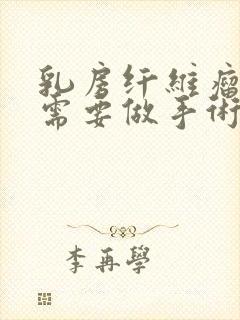 乳房纤維瘤
需要做手術
李再學